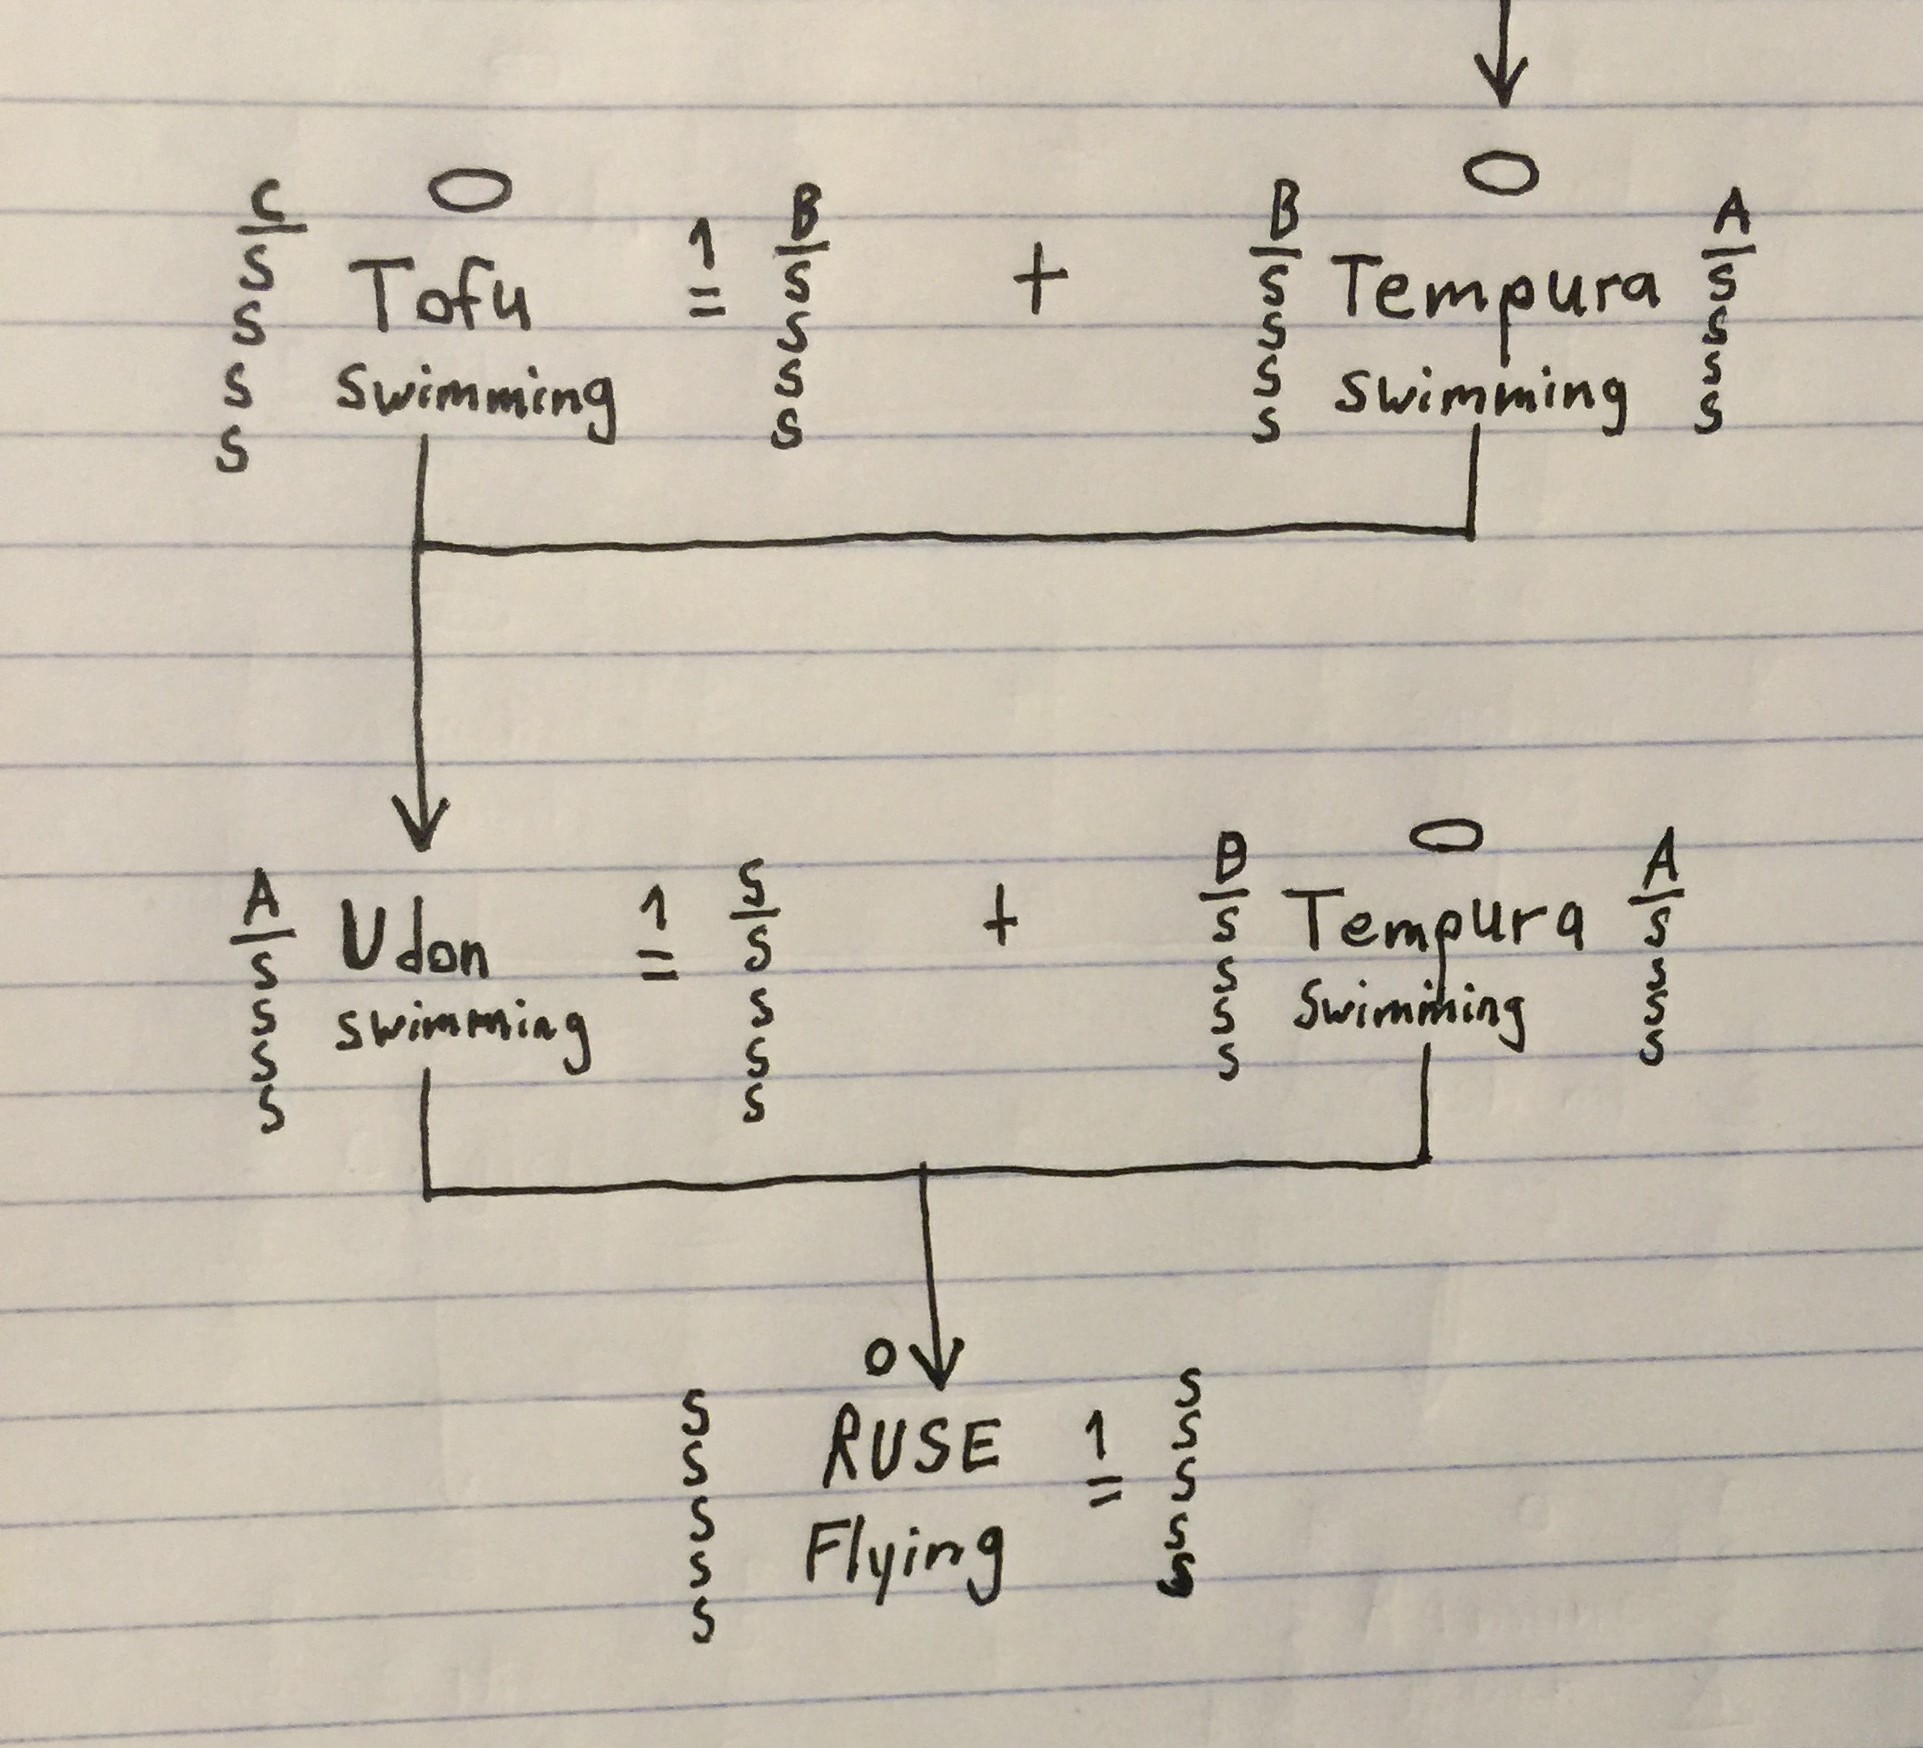 C Tofu 1 = B + B Tempura A
S S S S
S S S S
S swimming S S swimming S
S S S S
A Udon 1 = S + B Tempura A
S S S S
S swimming S S swimming S
S S S S
S S S S
S RUSE 1 = S
S S
S Flying S
S S
S S